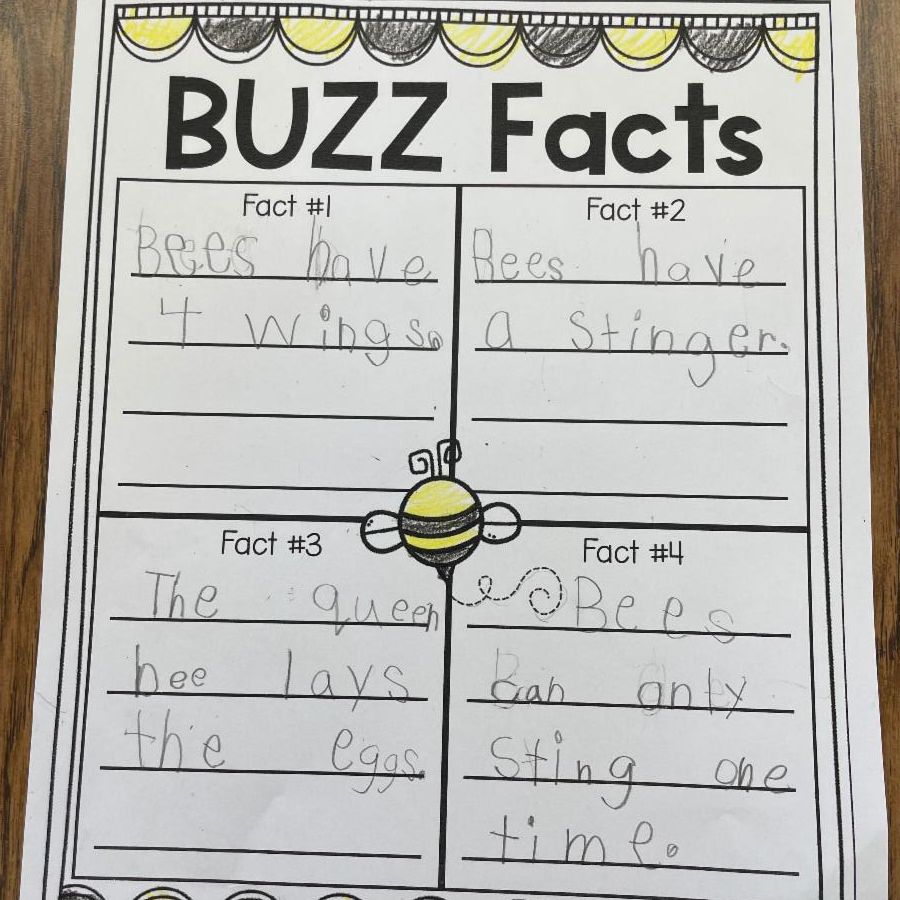 BUZZ Facts
Fact #1
Bees have
4 wings.
Fact #2
Bees have
a stinger.
Fact #3
The queen
bee lays
the eggs.
Fact #4
Bees
can only
sting one
time.